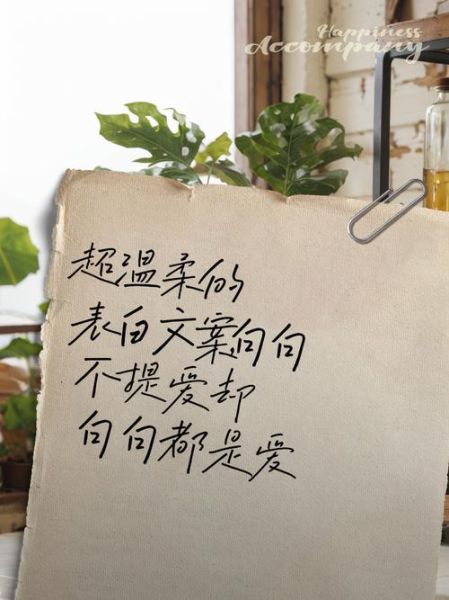 Happiness
Accompany
超温柔的
表白文案句句
不提爱却
句句都是爱